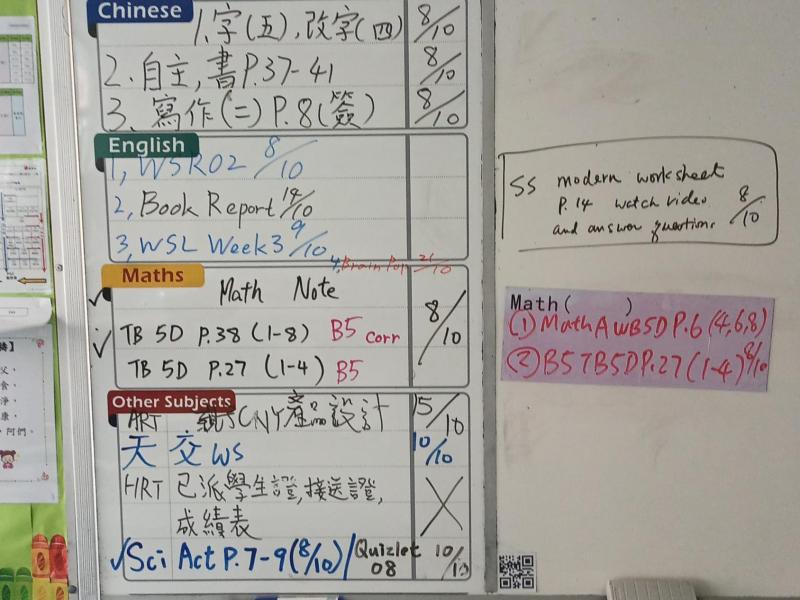 Chinese
1.字(五),改字(四) 8/10
2.自主,書P.37-41 8/10
3.寫作(二)P.8(簽) 8/10
English
1, WSR02 8/10
2, Book Report 14/10
3, WSL Week 3 9/10
4, Brain Pop 21/10
Maths
Math Note
TB 5D P.38 (1-8) B5 corr 8/10
TB 5D P.27 (1-4) B5
Other Subjects
ART CNY產品設計 15/10
天 交WS 10/10
HRT 已派學生證,接送證,
成績表
Sci Act P.7-9(8/10)/Quizlet 08 10/10
SS modern worksheet
P.14 watch video
and answer questions 8/10
Math( )
(1) Math A WB5D P.6 (4,6,8)
(2) B5 TB5D P.27 (1-4) 8/10